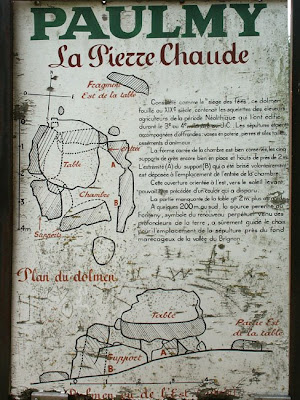 PAULMY
La Pierre Chaude
Fragment
Est de la table
Considéré comme le "siège des fées", ce dolmen
fouillé au XIXe siècle, contenait les squelettes des éleveurs
agriculteurs de la période Néolithique qui l'ont édifié
durant le 3e ou 4e J.C. Les sépultures étaient
accompagnées d'offrandes: vases en poterie, pierres et silex taillés
ossements d'animaux.
La forme carrée de la chambre est bien conservée, les cinq
supports de grès encore bien en place et hauts de près de 2m.
L'extrémité (A) du support (B) qui a été brisé volontairement
est déposée à l'emplacement de l'entrée de la chambre.
Cette ouverture orientée à l'est, vers le soleil levant
pouvait être précédée d'un couloir qui a disparu.
La partie manquante de la table gît 2m plus
A quelques 200 m au sud, la source pérenne de
symbole du renouveau perpétuel venu des
profondeurs de la terre, a sûrement guidé le choix
pour l'emplacement de la sépulture près du fond
marécageux de la vallée du Brignon.
entrée
Table
A
B
Chambre
Support
Plan du dolmen
Table
Partie Est
de la table
Support
A
B
Dolmen vu de l'Est